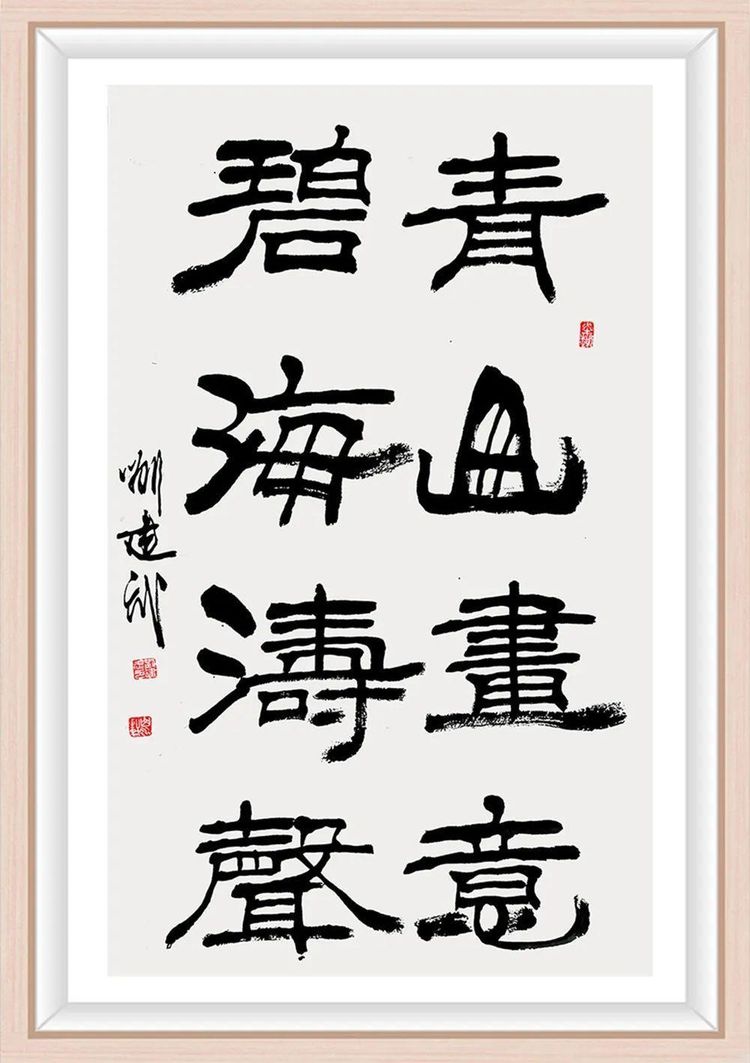 青山畫意
碧海濤聲